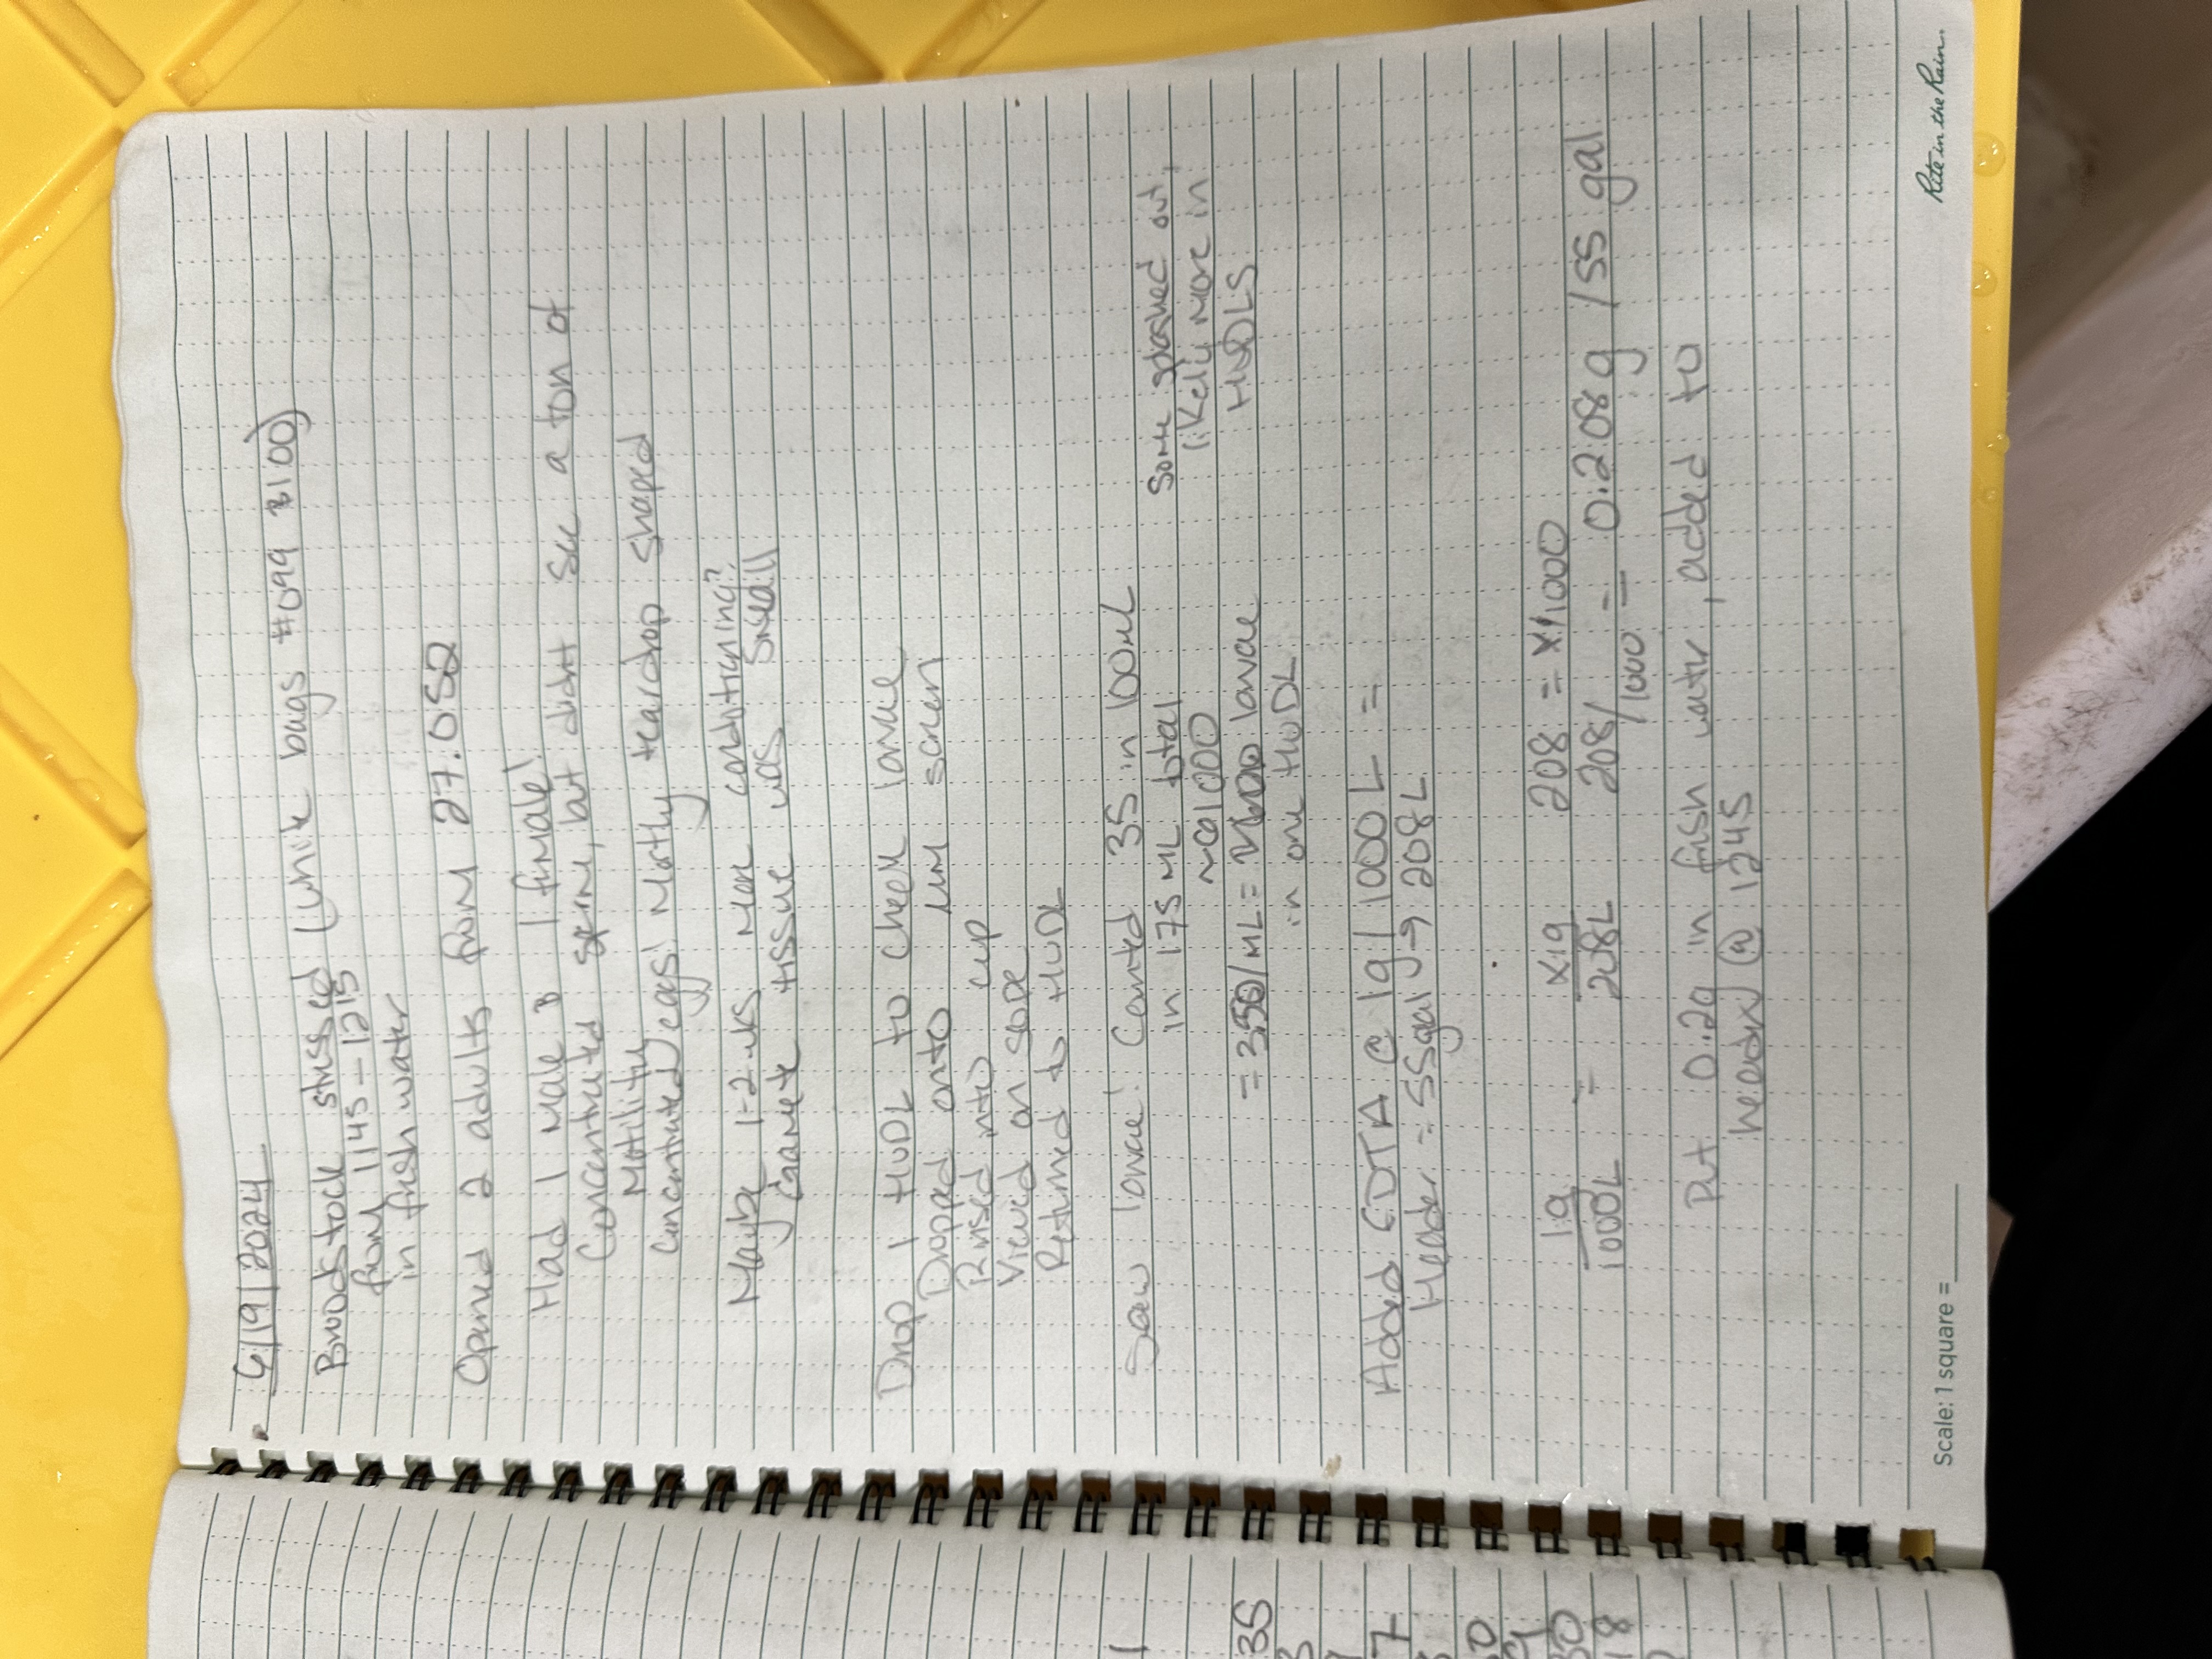 6/19/2024
Broodstock stressed (white bags #099 & 100)
from 1145 – 1215
in fresh water
Opened 2 adults from 27.052
Had 1 male & 1 female!
Concentrated sperm, but didn't see a ton of
motility
Concentrated eggs! Mostly teardrop shaped
Maybe 1-2 wks more conditioning?
Gamete tissue was small
Drop 1 HUDL to check larvae
Dropped onto µm screen
Rinsed into cup
Viewed on scope
Returned to HUDL
1
Saw larvae! Counted 35 in 100µL
in 175 mL total
Some splashed out,
~61000
likely more in
35
= 350/mL = larvae
HUDLS
in one HUDL
Added EDTA @ 1g / 1000 L =
7
Header = 55gal → 208L
30
18
1g X1g 208 = X1,000
1000L = 208L 208/1000 = 0.208g /55 gal
Put 0.2g in fresh water, added to
header @ 1245
Scale: 1 square =
Rite in the Rain.